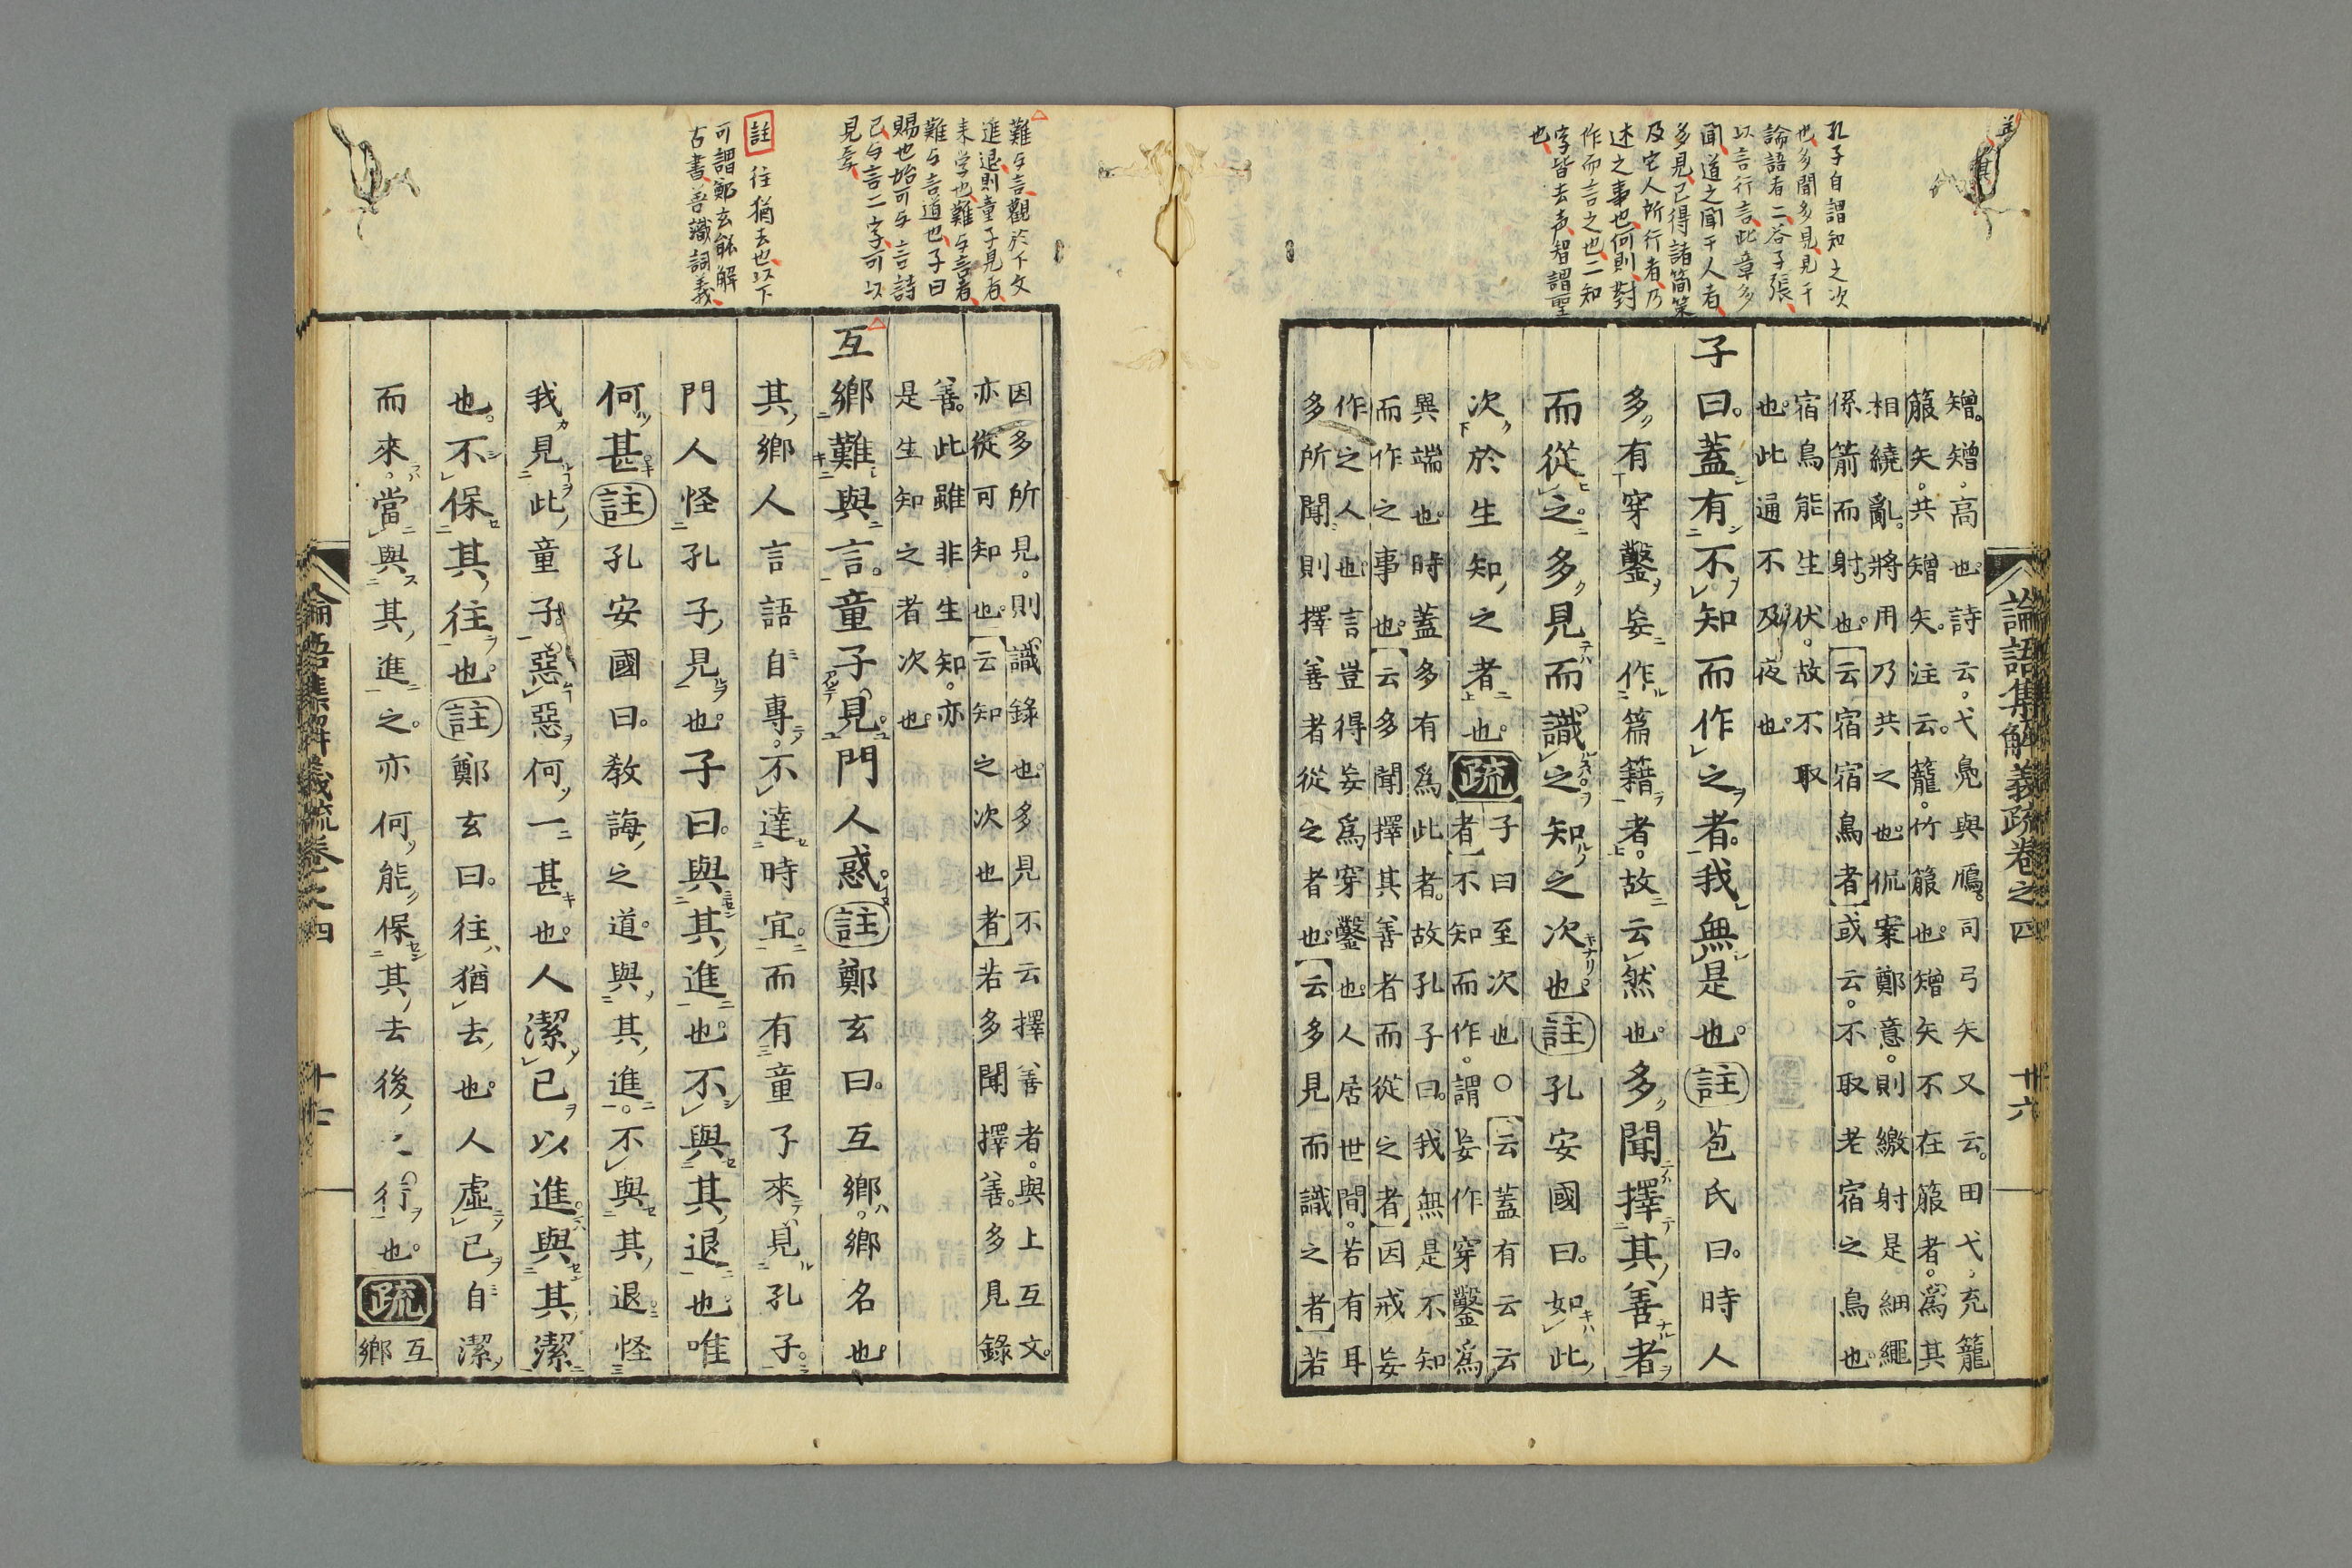 孔子自謂知之次
也多聞多見見于
論語者二答子張
以言行言此章多
聞道之聞于人者
多見已得諸簡策
及它人所行者乃
述之事也何則對
作而言之也二知
字皆去声智謂聖
也
論語集解義疏卷之四
廿六
矰矰高也詩云弋鳧與鴈司弓矢又云田弋充籠
箙矢共矰矢注云籠竹箙也矰矢不在箙者爲其
相繞亂將用乃共之也侃案鄭意則繳射是細繩
係箭而射也云宿宿鳥者或云不取老宿之鳥也
宿鳥能生伏故不取
也此通不及夜也
子曰蓋有不知而作之者我無是也註苞氏曰時人
多有穿鑿妄作篇籍者故云然也多聞擇其善者
而從之多見而識之知之次也註孔安國曰如此
次於生知之者也疏子曰至次也○云蓋有云云
者不知而作謂妄作穿鑿爲
異端也時蓋多有爲此者故孔子曰我無是不知
而作之事也云多聞擇其善者而從之者因戒妄
作之人也言豈得妄爲穿鑿也人居世間若有耳
多所聞則擇善者從之者也云多見而識之者若
難与言觀於下文
進退則童子見者
未学也難与言者
難与言道也子曰
賜也始可与言詩
已与言二字可以
見焉
註往猶去也以下
可謂鄭玄能解
古書善識詞義
因多所見則識錄也多見不云擇善者與上互文
亦從可知也云知之次也者若多聞擇善多見錄
善此雖非生知亦
是生知之者次也
互鄉難與言童子見門人惑註鄭玄曰互鄉鄉名也
其鄉人言語自專不達時宜而有童子來見孔子
門人怪孔子見也子曰與其進也不與其退也唯
何甚註孔安國曰教誨之道與其進不與其退怪
我見此童子惡惡何一甚也人潔己以進與其潔
也不保其往也註鄭玄曰往猶去也人虛己自潔
而來當與其進之亦何能保其去後之行也疏互
鄉
論語集解義疏卷之四